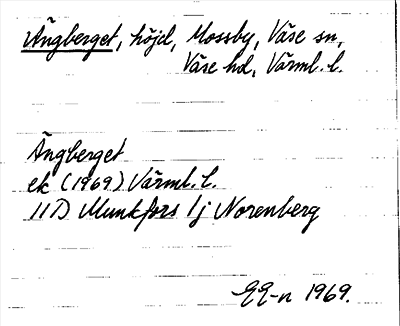 Ängberget, höjd, Mossby, Väse sn,
Väse hd, Värml. l.
Ängberget
ek (1969) Värml. l.
11D Munkfors 1j Norenberg
EE-n 1969.